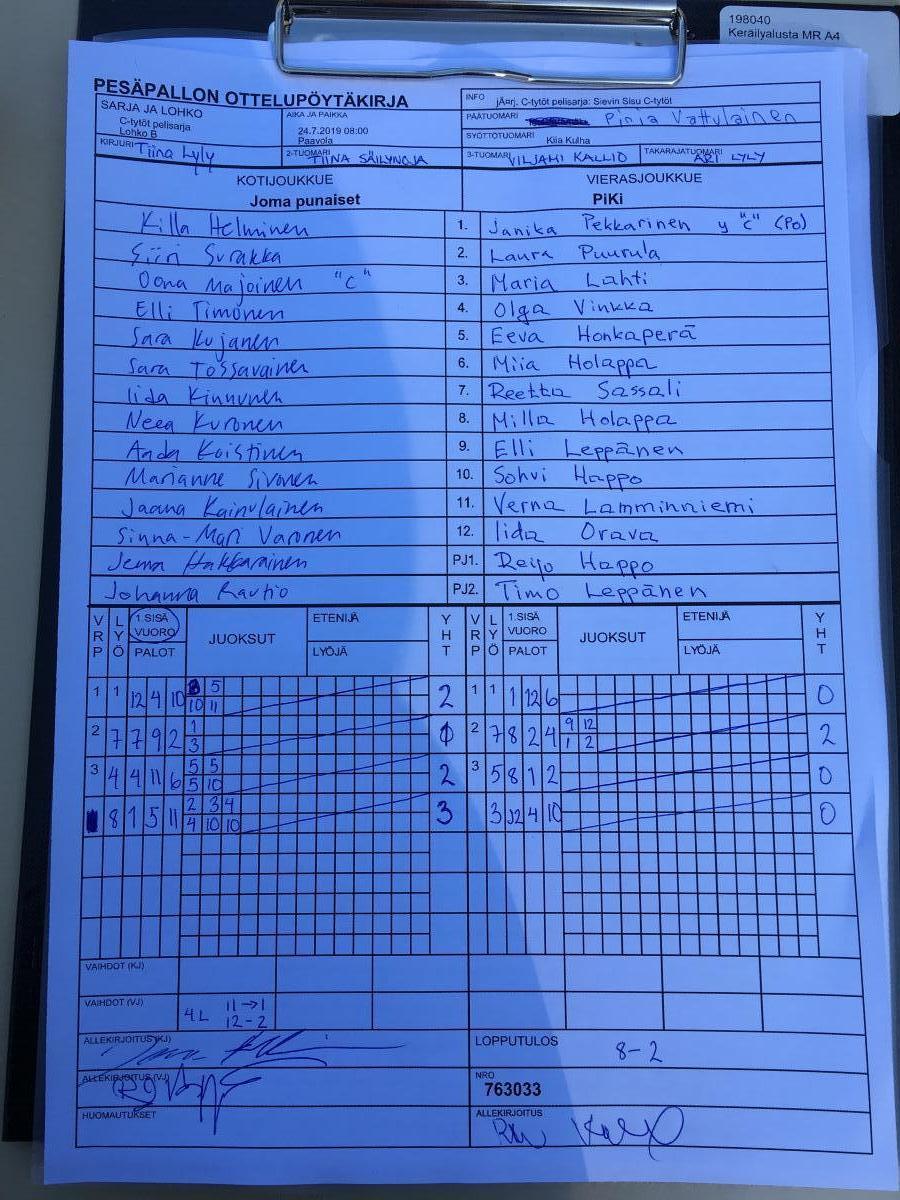 198040
Keräilyalusta MR A4
PESÄPALLON OTTELUPÖYTÄKIRJA
SARJA JA LOHKO
C-tytöt pelisarja
Lohko B
AIKA JA PAIKKA
24.7.2019 08:00
Paavola
INFO jÄ¤rj. C-tytöt pelisarja: Sievin Sisu C-tytöt
PÄÄTUOMARI Pinja Vattulainen
SYÖTTÖTUOMARI Kiia Kulha
KIRJURI Tiina Lyly
2-TUOMARI TIINA SÄILYNOJA
3-TUOMARI VILJAMI KALLIO
TAKARAJATUOMARI ARI LYLY
KOTIJOUKKUE VIERASJOUKKUE
Joma punaiset PiKi
Killa Helminen 1. Janika Pekkarinen y "C" (Po)
Siiri Surakka 2. Laura Puurula
Oona Majoinen "C" 3. Maria Lahti
Elli Timonen 4. Olga Vinkka
Sara Kujanen 5. Eeva Honkaperä
Sara Tossavainen 6. Miia Holappa
Iida Kinnunen 7. Reetta Sassali
Neea Kuronen 8. Milla Holappa
Anda Koistinen 9. Elli Leppänen
Marianne Sivonen 10. Sohvi Happo
Jaana Kainulainen 11. Verna Lamminniemi
Sinna-Mari Varonen 12. Iida Orava
Jenna Hakkarainen PJ1. Reijo Happo
Johanna Rautio PJ2. Timo Leppänen
VRP LYÖ 1.SISÄ VUORO PALOT JUOKSUT ETENIJÄ LYÖJÄ YHT VRP LYÖ 1.SISÄ VUORO PALOT JUOKSUT ETENIJÄ LYÖJÄ YHT
1 1 12 4 10 5 2 1 1 1 12 6 0
10 11
2 7 7 9 2 1 2 7 8 2 4 9 12 2
3 1 2
3 4 4 11 6 5 5 2 3 5 8 1 2 0
5 10
8 1 5 11 2 3 4 3 3 12 4 10 0
4 10 10
VAIHDOT (KJ)
VAIHDOT (VJ) 4L 11→1
12-2
ALLEKIRJOITUS (KJ)
LOPPUTULOS 8-2
ALLEKIRJOITUS (VJ)
NRO
763033
HUOMAUTUKSET
ALLEKIRJOITUS